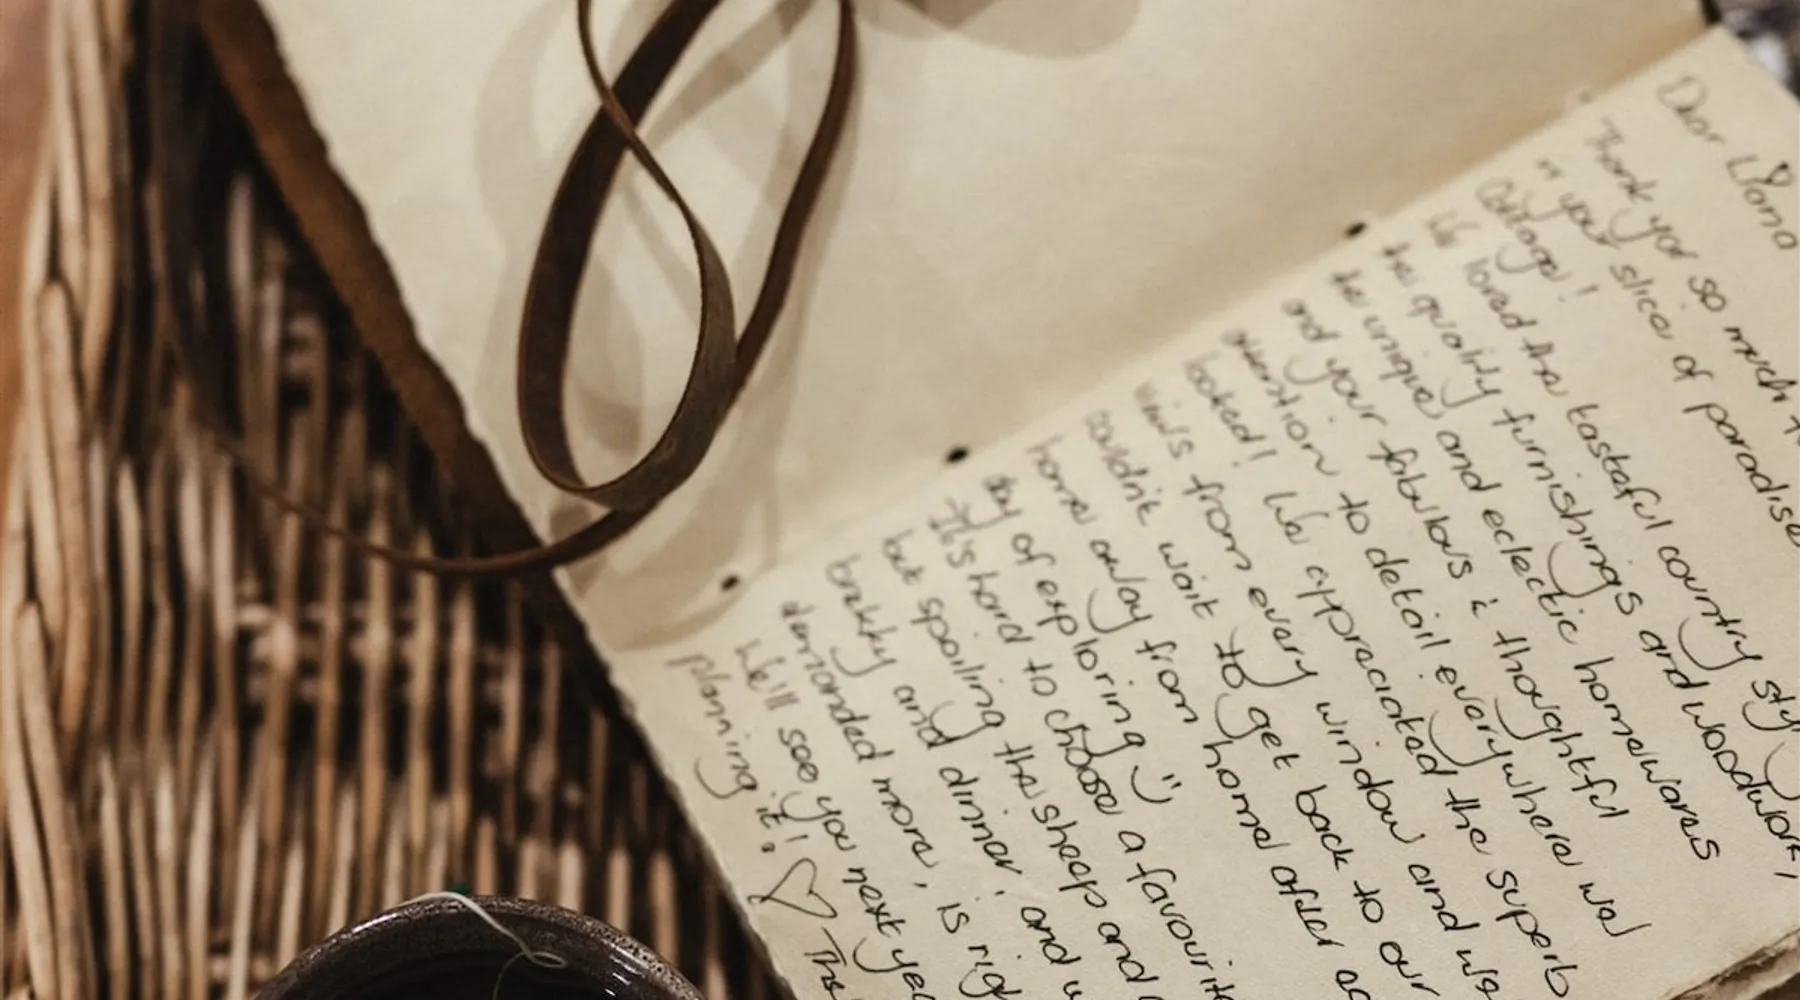 Dear Liana
Thank you so much
in your slice of paradise
Cottage!
We loved the tasteful country
the quality furnishings and woodwork,
the unique and eclectic homewares
and your fabulous & thoughtful
attention to detail everywhere we
looked! We appreciated the superb
from every window and
couldn't wait to get back to our
home away from home after
day of exploring :)
It's hard to choose a favourite
but spoiling the sheep and
and dinner, and
demanded more, is
We'll see you next
planning it! ♡ The